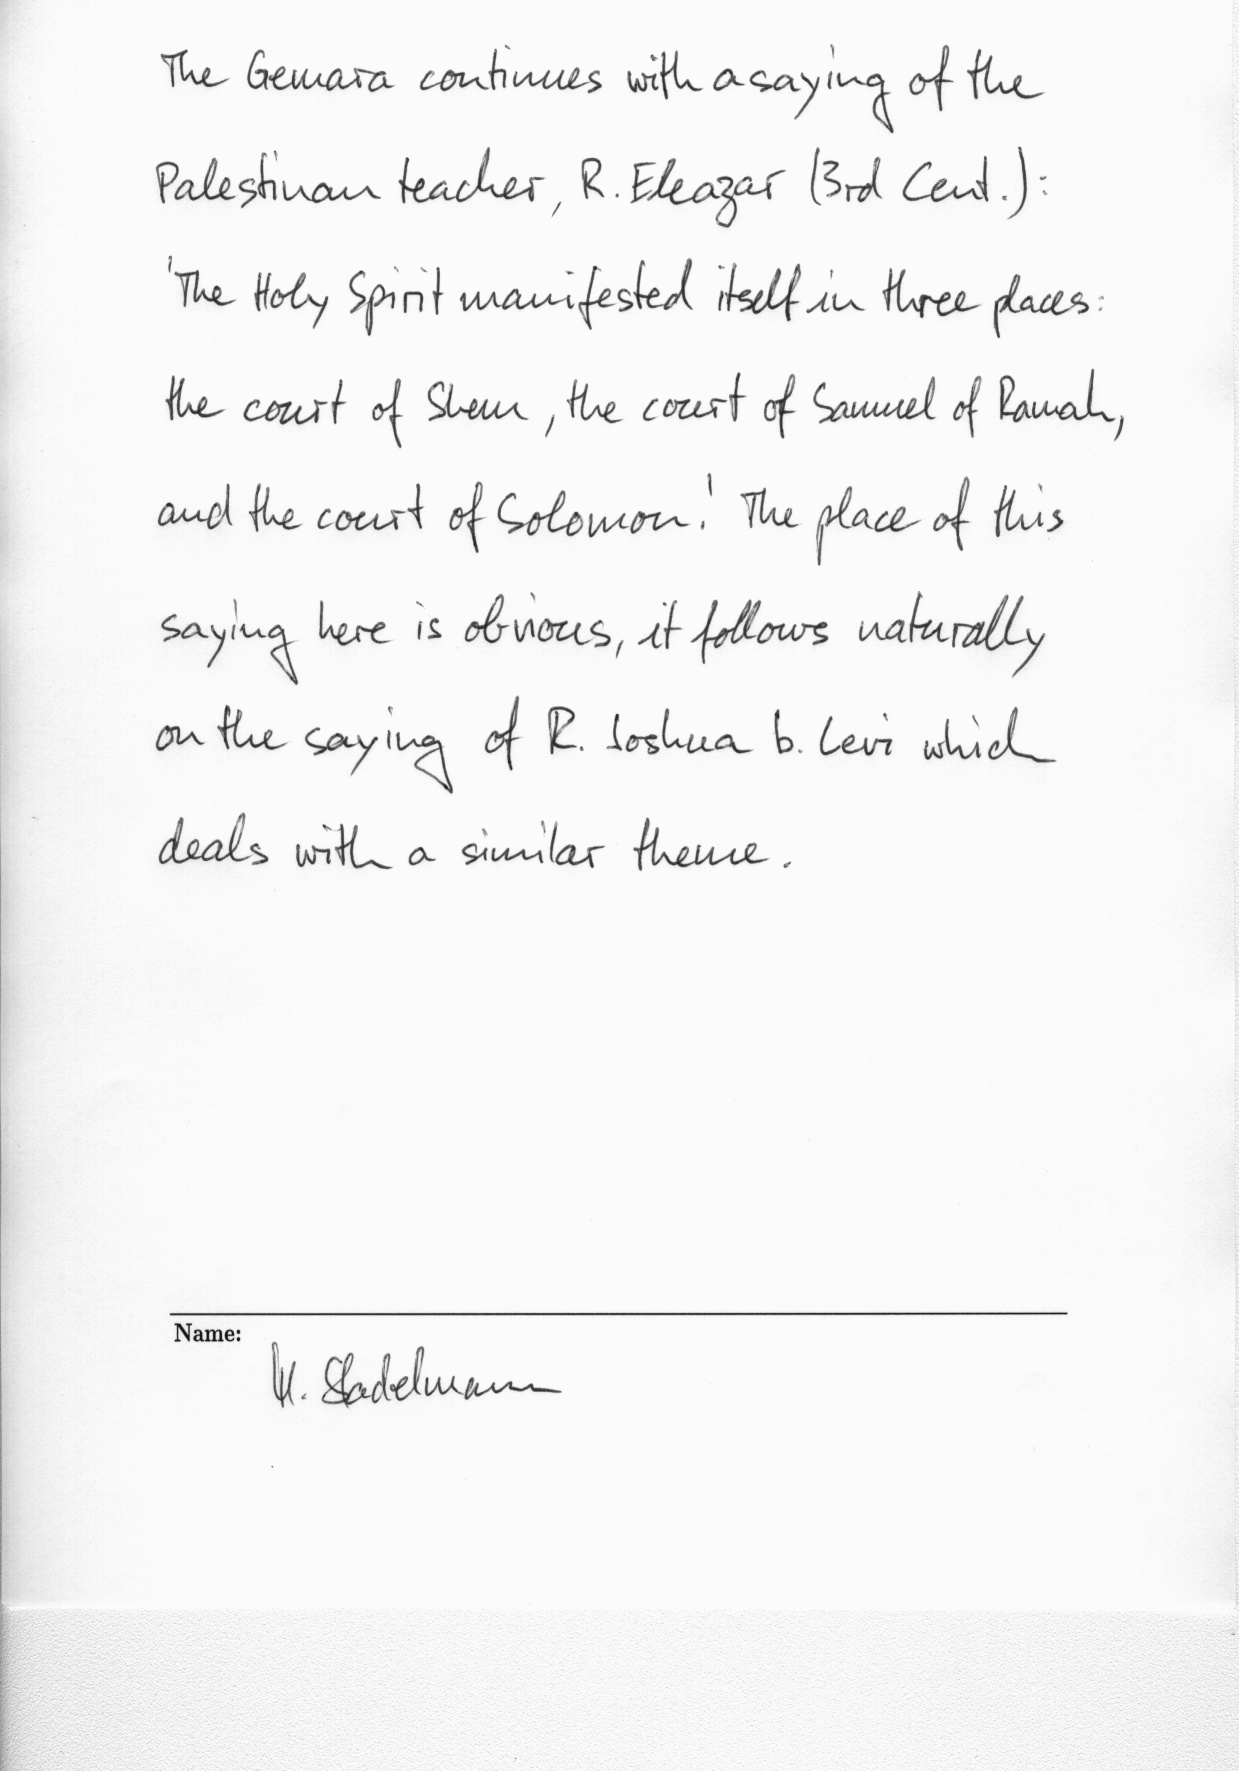 The Gemara continues with a saying of the
Palestinan teacher, R. Eleazar (3rd Cent.):
'The Holy Spirit manifested itself in three places:
the court of Shem, the court of Samuel of Ramah,
and the court of Solomon.' The place of this
saying here is obvious, it follows naturally
on the saying of R. Joshua b. Levi which
deals with a similar theme.
Name:
Stadelmann